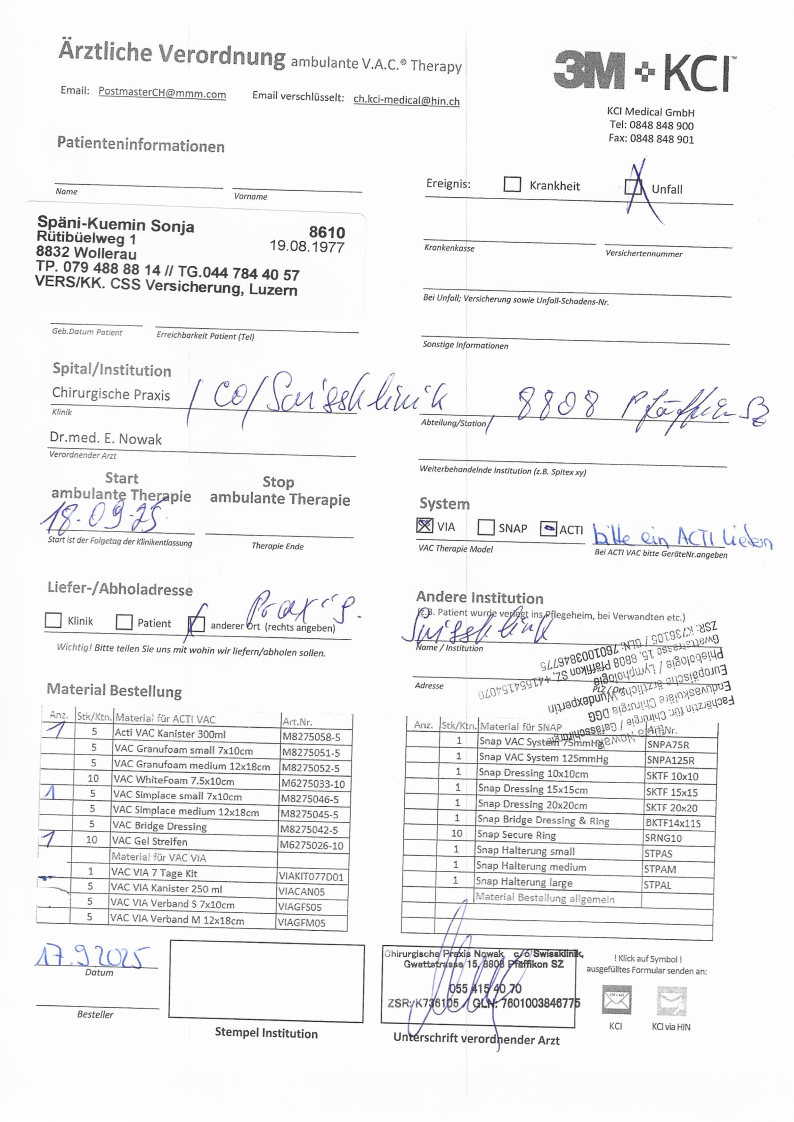 Ärztliche Verordnung ambulante V.A.C.® Therapy
3M + KCI™
Email: PostmasterCH@mmm.com Email verschlüsselt: ch.kci-medical@hin.ch
KCI Medical GmbH
Tel: 0848 848 900
Fax: 0848 848 901
Patienteninformationen
Name Vorname
Späni-Kuemin Sonja 8610
Rütibüelweg 1 19.08.1977
8832 Wollerau
TP. 079 488 88 14 // TG.044 784 40 57
VERS/KK. CSS Versicherung, Luzern
Geb.Datum Patient Erreichbarkeit Patient (Tel)
Ereignis: Krankheit Unfall
Krankenkasse Versichertennummer
Bei Unfall; Versicherung sowie Unfall-Schadens-Nr.
Sonstige Informationen
Spital/Institution
Chirurgische Praxis / CO/Swissklinik, 8808 Pfäffikon SZ
Klinik Abteilung/Station
Dr.med. E. Nowak
Verordnender Arzt
Weiterbehandelnde Institution (z.B. Spitex xy)
Start ambulante Therapie
Stop ambulante Therapie
18.09.25.
Start ist der Folgetag der Klinikentlassung Therapie Ende
System
VIA SNAP ACTI bitte ein ACTI liefern
VAC Therapie Model Bei ACTI VAC bitte GeräteNr.angeben
Liefer-/Abholadresse
Klinik Patient anderer Ort (rechts angeben) Praxis.
Wichtig! Bitte teilen Sie uns mit wohin wir liefern/abholen sollen.
Andere Institution
(z.B. Patient wurde verlegt ins Pflegeheim, bei Verwandten etc.)
Swissklinik
Name / Institution
Adresse
PLZ/Ort
Fachärztin für Chirurgie / Gefässchirurgie
Endovaskuläre Chirurgie DGG
Europäische ärztliche Wundexpertin
Phlebologie / Lymphologie
Gwattstrasse 15, 8808 Pfäffikon SZ, +41554154070
ZSR: K736105 / GLN: 7601003846775
Material Bestellung
Anz. Stk/Ktn. Material für ACTI VAC Art.Nr.
1 5 Acti VAC Kanister 300ml M8275058-5
5 VAC Granufoam small 7x10cm M8275051-5
5 VAC Granufoam medium 12x18cm M8275052-5
10 VAC WhiteFoam 7.5x10cm M6275033-10
1 5 VAC Simplace small 7x10cm M8275046-5
5 VAC Simplace medium 12x18cm M8275045-5
5 VAC Bridge Dressing M8275042-5
1 10 VAC Gel Streifen M6275026-10
Material für VAC VIA
1 VAC VIA 7 Tage Kit VIAKIT077D01
5 VAC VIA Kanister 250 ml VIACAN05
5 VAC VIA Verband S 7x10cm VIAGFS05
5 VAC VIA Verband M 12x18cm VIAGFM05
Anz. Stk/Ktn. Material für SNAP Art.Nr.
1 Snap VAC System 75mmHg SNPA75R
1 Snap VAC System 125mmHg SNPA125R
1 Snap Dressing 10x10cm SKTF 10x10
1 Snap Dressing 15x15cm SKTF 15x15
1 Snap Dressing 20x20cm SKTF 20x20
1 Snap Bridge Dressing & Ring BKTF14x11S
10 Snap Secure Ring SRNG10
1 Snap Halterung small STPAS
1 Snap Halterung medium STPAM
1 Snap Halterung large STPAL
Material Bestellung allgemein
17.9.2025
Datum
Besteller
Stempel Institution
Chirurgische Praxis Nowak c/o Swissklinik,
Gwattstrasse 15, 8808 Pfäffikon SZ
055 415 40 70
ZSR: K736105 / GLN: 7601003846775
Unterschrift verordnender Arzt
! Klick auf Symbol !
ausgefülltes Formular senden an:
KCI KCI via HIN